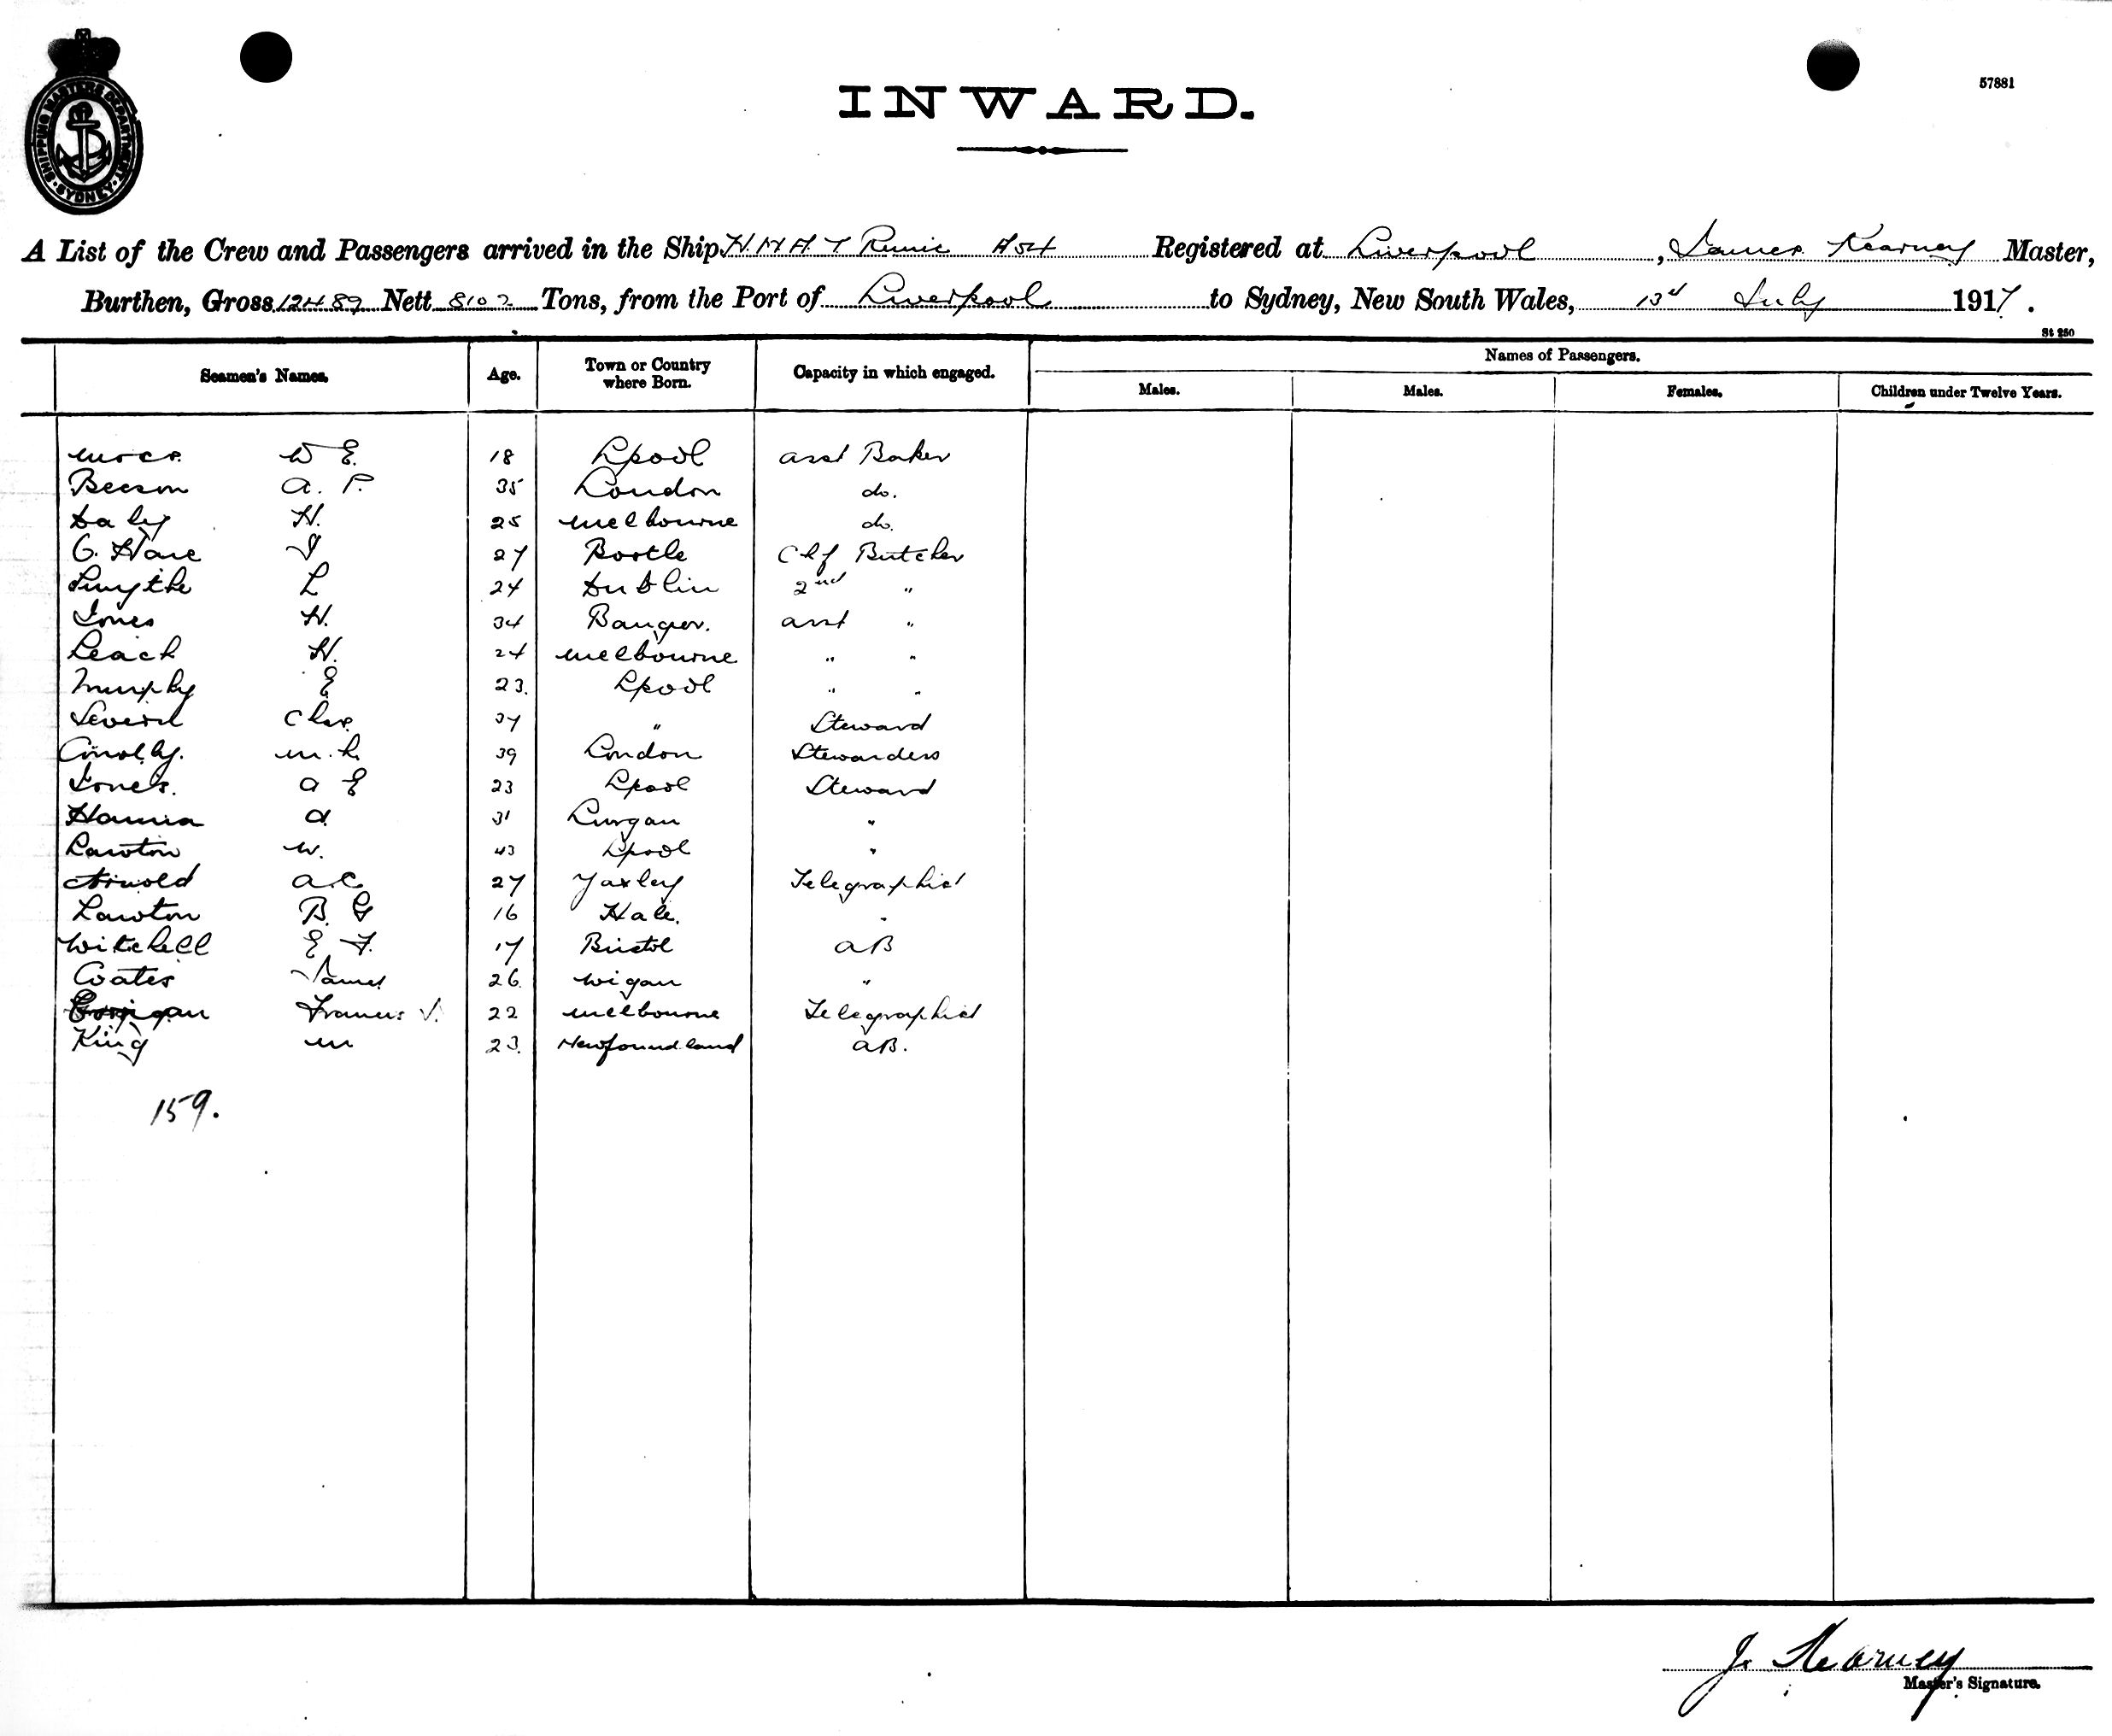 SHIPPING MASTERS DEPARTMENT · SYDNEY ·
57881
INWARD.
A List of the Crew and Passengers arrived in the Ship H.M.A.T Runic A54 Registered at Liverpool, James Kearney Master,
Burthen, Gross 12489 Nett Tons, from the Port of Liverpool to Sydney, New South Wales, 13d July 1917.
St 250
Seamen's Names. Age. Town or Country where Born. Capacity in which engaged. Names of Passengers.
Males. Males. Females. Children under Twelve Years.
W E. 18 Lpool asst Baker
Beeson A. P. 35 London do.
Daly H. 25 Melbourne do.
O. Hare J 27 Bootle Chf Butcher
Smythe L 24 Dublin 2nd "
Jones H. 34 Bangor. asst "
Leach H. 24 Melbourne " "
Murphy E 23. Lpool " "
Chas. 37 " Steward
Conolly. M. L. 39 London Stewardess
Jones. A E 23 Lpool Steward
Hanna A. 31 Lurgan "
Lawton W. 43 Lpool "
Arnold A.C. 27 Yaxley Telegraphist
Lawton B. G 16 Hale. "
Witchell E F. 17 Bristol AB
Coates James 26. Wigan "
Corrigan Francis J. 22 Melbourne Telegraphist
King M 23. Newfoundland AB.
159.
J. Kearney
Master's Signature.